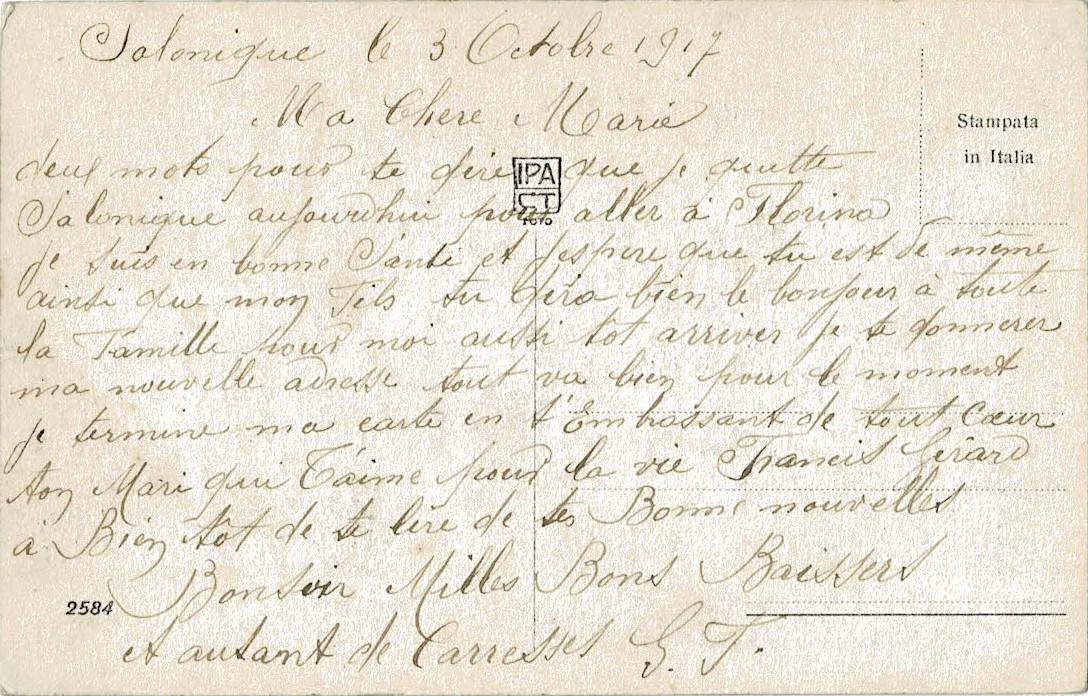 Salonique le 3 Octobre 1917
Ma Chere Marie
Stampata
in Italia
deux mots pour te dire que je quitte
IPA
CT
FOTO
Salonique aujourdhui pour aller à Florina
je suis en bonne Santé et j'espere que tu est de même
ainsi que mon Fils tu dira bien le bonjour à toute
la Famille pour moi aussi tot arriver je te donnerer
ma nouvelle adresse tout va bien pour le moment
je termine ma carte en t'Embrassant de tout Cœur
ton Mari qui T'aime pour la vie Francis Gérard
à Bien tôt de te lire de tes Bonne nouvelles
Bonsoir Milles Bons Baissers
2584
et autant de Carresses G. F.